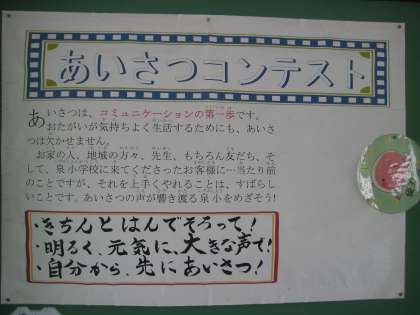 あいさつコンテスト
あいさつは、コミュニケーションの第一歩です。
おたがいが気持ちよく生活するためにも、あいさ
つは欠かせません。
お家の人、地域の方々、先生、もちろん友だち、そ
して、泉小学校に来てくださったお客様に…当たり前
のことですが、それを上手くやれることは、すばらし
いことです。あいさつの声が響き渡る泉小をめざそう!
・きちんとはんでそろって!
・明るく、元気に、大きな声で!
・自分から、先にあいさつ!